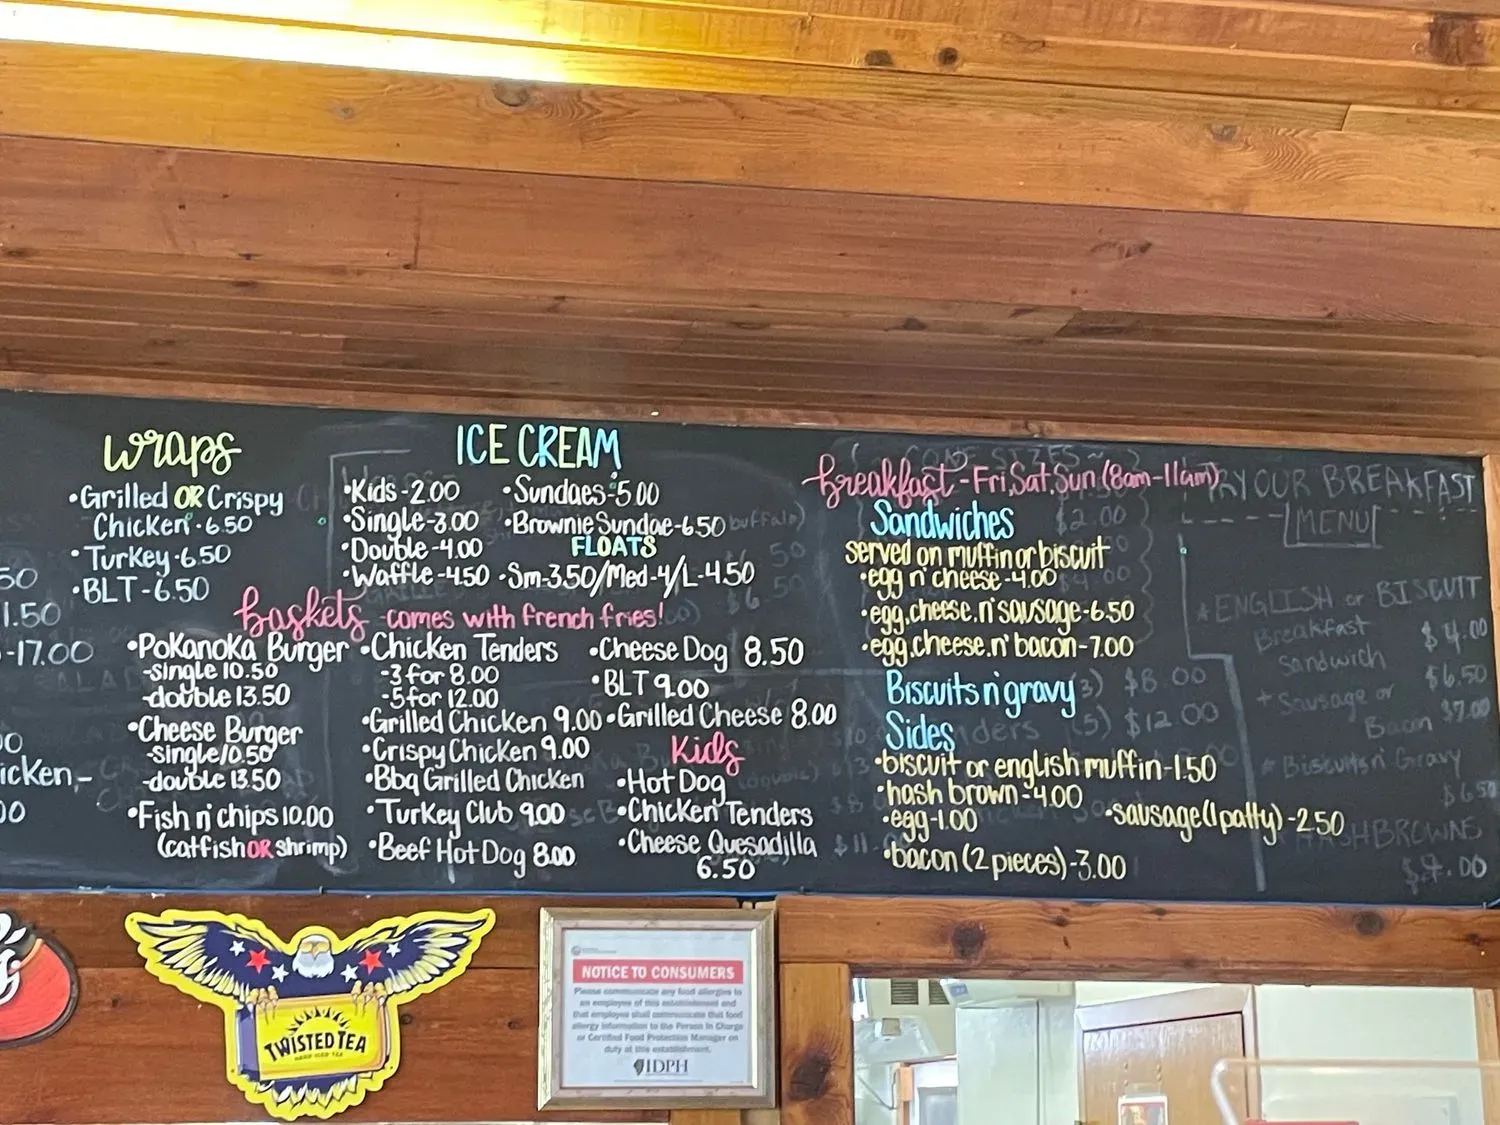 wraps
•Grilled OR Crispy
Chicken•6.50
•Turkey•6.50
•BLT-6.50
50
1.50
-17.00
icken-
00
ICE CREAM
•Kids-2.00
•Single-3.00
•Double-4.00
•Waffle-4.50
•Sundaes-5.00
•Brownie Sundae-6.50
FLOATS
•Sm-3.50/Med-4/L-4.50
baskets -comes with french fries!
•Pokanoka Burger
-single 10.50
-double 13.50
•Cheese Burger
-single 10.50
-double 13.50
•Fish n' chips 10.00
(catfish OR shrimp)
•Chicken Tenders
-3 for 8.00
-5 for 12.00
•Grilled Chicken 9.00
•Crispy Chicken 9.00
•Bbq Grilled Chicken
•Turkey Club 9.00
•Beef Hot Dog 8.00
•Cheese Dog 8.50
•BLT 9.00
•Grilled Cheese 8.00
Kids
•Hot Dog
•Chicken Tenders
•Cheese Quesadilla
6.50
breakfast-Fri,Sat,Sun (8am-11am)
Sandwiches
served on muffin or biscuit
•egg n' cheese-4.00
•egg,cheese,n' sausage-6.50
•egg,cheese,n' bacon-7.00
Biscuits n' gravy
Sides
•biscuit or english muffin-1.50
•hash brown-4.00
•egg-1.00
•bacon (2 pieces)-3.00
•sausage (1 patty)-2.50
TRY OUR BREAKFAST
MENU
*ENGLISH or BISCUIT
Breakfast $4.00
Sandwich
+ Sausage or $6.50
Bacon $7.00
* Biscuits n' Gravy
$6.50
HASHBROWNS
$4.00
CONE SIZES
$2.00
buffalo)
(3) $8.00
(5) $12.00
TWISTED TEA
HARD ICED TEA
NOTICE TO CONSUMERS
Please communicate any food allergies to
an employee of this establishment and
that employee shall communicate that food
allergy information to the Person in Charge
or Certified Food Protection Manager on
duty at this establishment.
IDPH